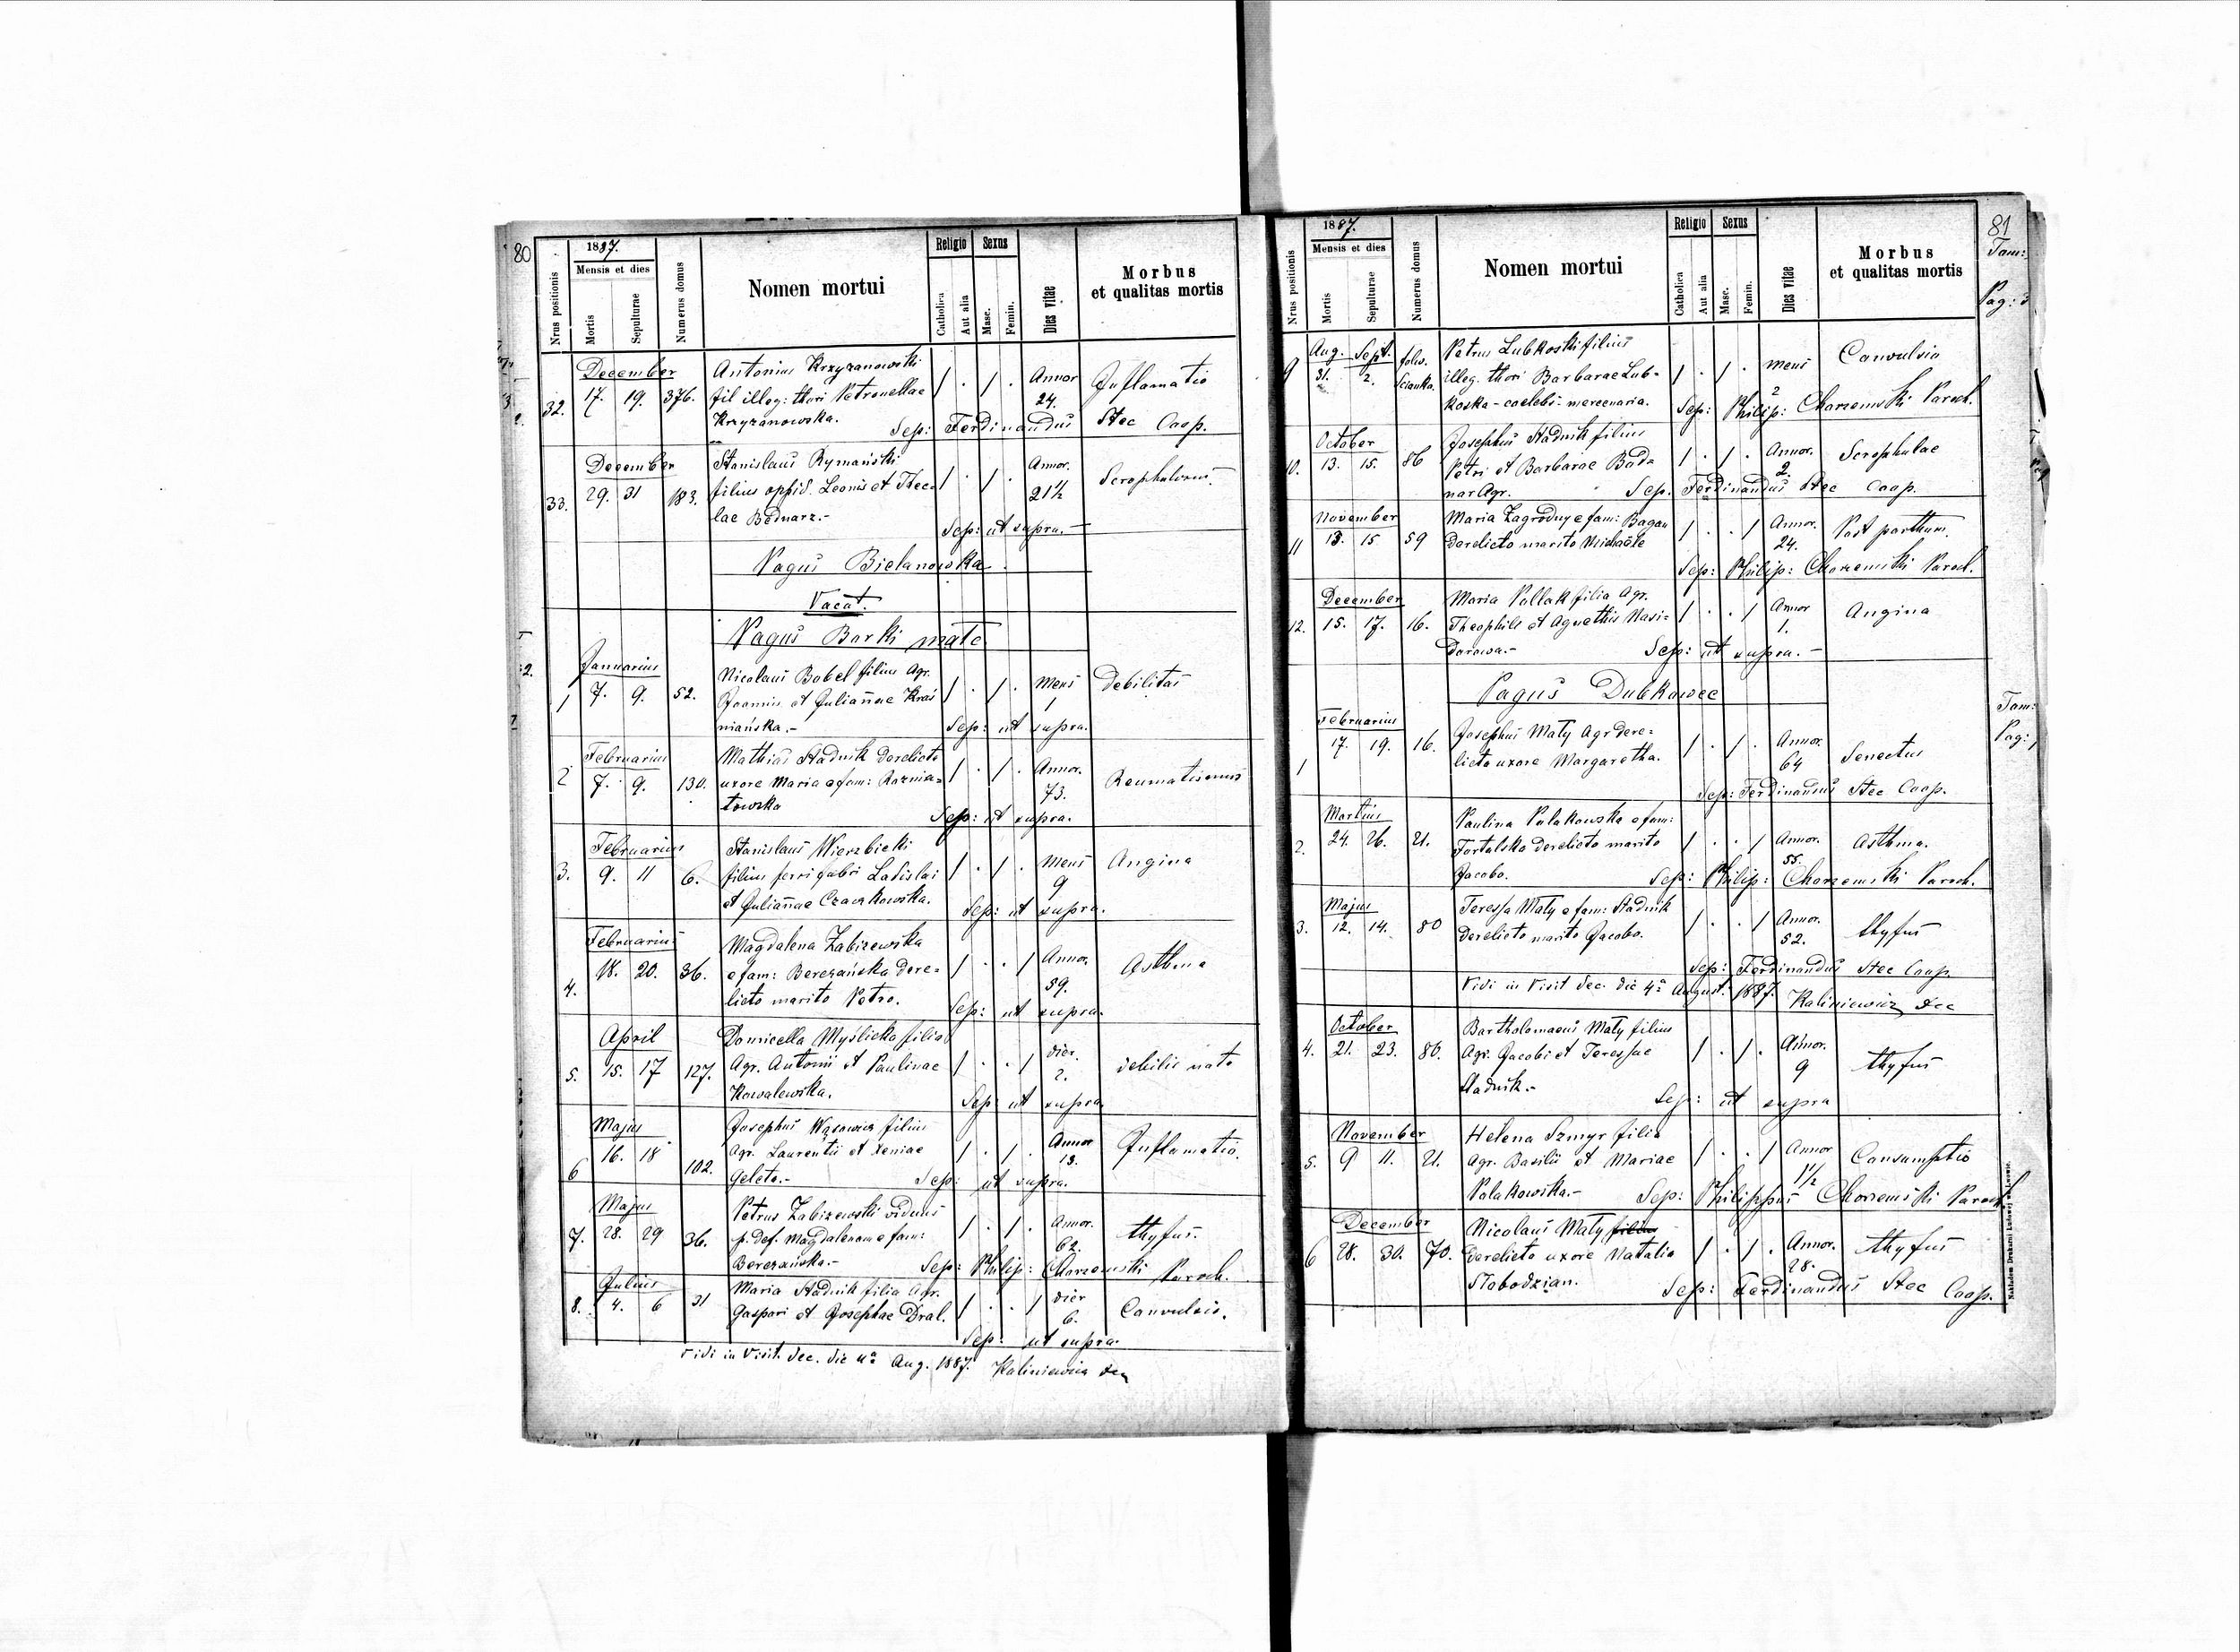 80
Nrus positionis
1887.
Mensis et dies
Mortis
Sepulturae
Numerus domus
Nomen mortui
Religio
Catholica
Aut alia
Sexus
Masc.
Femin.
Dies vitae
Morbus
et qualitas mortis
December
32. 17. 19. 376.
Antonius Krzyzanowski
fil illeg: thori Petronellae
Krzyzanowska.
/ . / . Annor
24.
Inflamatio
Sep: Ferdinandus Stec Coop.
December
33. 29. 31 183.
Stanislaus Rymański
filius oppid. Leonis et Thec-
lae Bednarz.-
/ . / . Annor.
21½
Sep: ut supra.-
Pagus Bielanowska
Vacat.
Pagus Borki małe
Januarius
1 7. 9. 52.
Nicolaus Bobel filius Agr.
Joannis et Juliannae Kras
niańska.-
/ . / . Mens
1
Debilitas
Sep: ut supra.
Februarius
2 7. 9. 130.
Mathias Stadnik derelicta
uxore Maria e fam: Roznia=
towska
/ . / . Annor.
73.
Reumatismus
Sep: ut supra.
Februarius
3. 9. 11 6.
Stanislaus Wierzbicki
filius ferri fabri Ladislai
et Juliannae Czaczkowska.
/ . / . Mens
9
Angina
Sep: ut supra.
Februarius
4. 18. 20. 36.
Magdalena Zabizewska
e fam: Berezańska dere=
licto marito Petro.
/ . . / Annor.
59.
Asthma
Sep: ut supra.
April
5. 15. 17 127.
Domicella Myślicka filia
Agr. Antonii et Paulinae
Kowalewska.
/ . . / dier.
2.
debilis nata
Sep: ut supra.
Majus
6 16. 18 102.
Josephus Wąsowicz filius
Agr. Laurentii et Xeniae
Geleta.-
/ . / . Annor
13.
Inflamatio.
Sep: ut supra.
Majus
7. 28. 29 36.
Petrus Zabizewski viduus
p. def. Magdalenam e fam:
Berezańska.-
/ . / . Annor.
62.
thyfus.
Sep: Philip: Chorzemski Paroch.
Julius
8. 4. 6 31
Maria Stadnik filia Agr.
Gaspari et Josephae Dral.
/ . . / dier
6.
Convulsio.
Sep: ut supra.
Vidi in Visit. dec. die 4ª Aug. 1887. Kaliniewicz dec
81
Tam:
Pag:
Nrus positionis
1887.
Mensis et dies
Mortis
Sepulturae
Numerus domus
Nomen mortui
Religio
Catholica
Aut alia
Sexus
Masc.
Femin.
Dies vitae
Morbus
et qualitas mortis
Aug. Sept.
9 31. 2. folw. Scianka.
Petrus Lubkoski filius
illeg. thori Barbarae Lub=
koska - coelebs - mercenaria.
/ . / . mens
2
Convulsio
Sep: Philip: Chorzemski Paroch.
October
10. 13. 15. 86
Josephus Stadnik filius
Petri et Barbarae Bod=
nar Agr.
/ . / . Annor.
2.
Scrophulae
Sep. Ferdinandus Stec Coop.
November
11 13. 15 59
Maria Zagrodny e fam: Bagan
derelicto marito Michaële
/ . . / Annor.
24.
Post parthum.
Sep: Philip: Chorzemski Paroch.
December
12. 15. 17. 16.
Maria Pollak filia Agr.
Theophili et Agnethis Nasi=
dorowa.-
/ . . / Annor
1.
Angina
Sep: ut supra.-
Pagus Dubkowce
Februarius
1 17. 19. 16.
Josephus Mały Agr dere=
licta uxore Margaretha.
/ . / . Annor.
64
Senectus
Sep: Ferdinandus Stec Coop.
Martius
2. 24. 26. 21.
Paulina Polakowska e fam:
Fortalska derelicto marito
Jacobo.
/ . . / Annor.
55.
Asthma.
Sep: Philip: Chorzemski Paroch.
Majus
3. 12. 14. 80
Teressa Mały e fam: Stadnik
derelicto marito Jacobo.
/ . . / Annor.
52.
thyfus
Sep: Ferdinandus Stec Coop.
Vidi in Visit dec. die 4ª August. 1887. Kaliniewicz dec
October
4. 21. 23. 80.
Bartholomaeus Mały filius
Agr. Jacobi et Teressae
Stadnik.-
/ . / . Annor.
9
thyfus
Sep: ut supra
November
5. 9 11. 21.
Helena Szmyr filia
Agr. Basilii et Mariae
Polakowska.-
/ . . / Annor
1½
Consumptio
Sep: Philippus Chorzemski Paroch.
December
6 28. 30. 70.
Nicolaus Mały filius
derelicta uxore Natalia
Słobodzian.
/ . / . Annor.
28.
thyfus
Sep: Ferdinandus Stec Coop.
Nakładem Drukarni Ludowej we Lwowie.
Tam:
Pag: